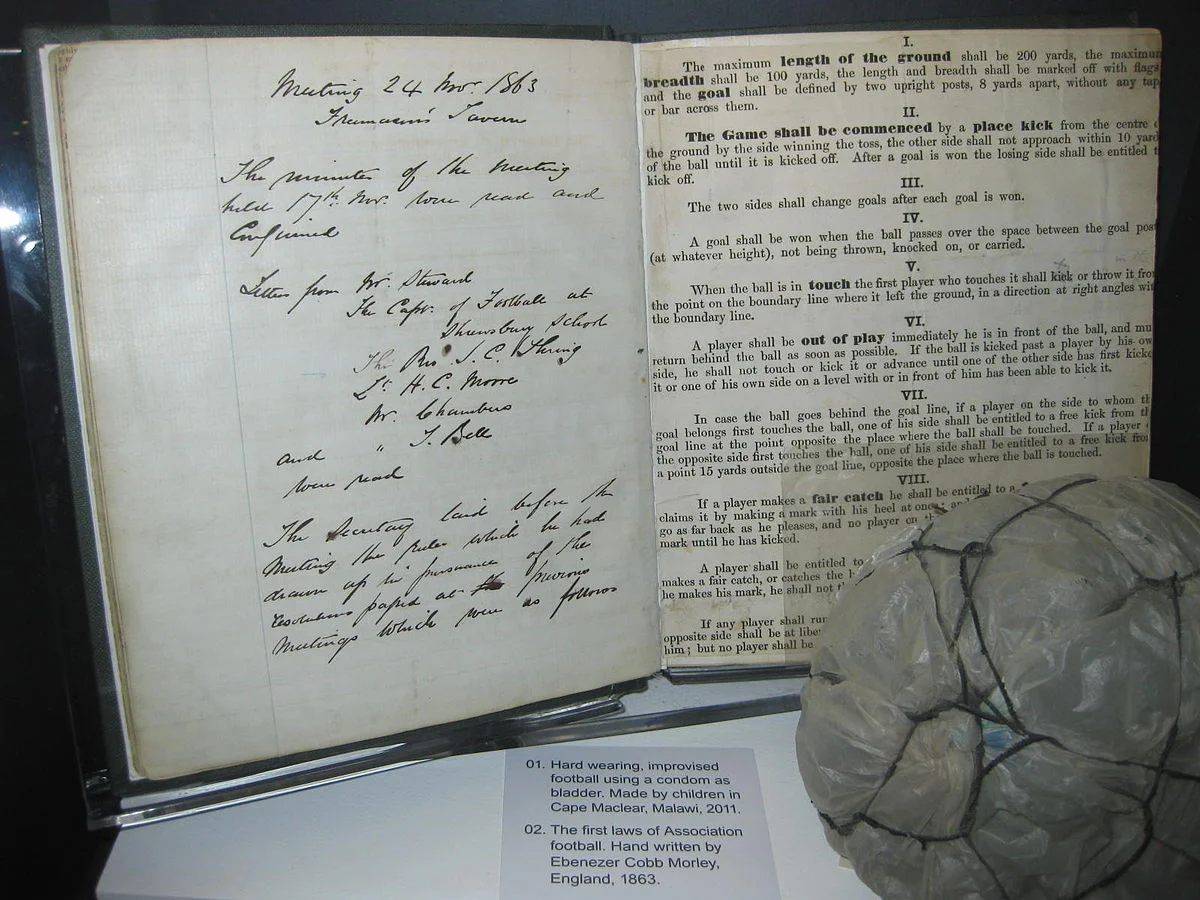 Meeting 24 Nov. 1863
Freemason's Tavern
The minutes of the Meeting
held 17th. Nov. were read and
Confirmed
Letters from Mr. Steward
The Capt. of Football at
Shrewsbury School
The Rev. J. C. Thring
Lt. H. C. Moore
Mr. Chambers
and " J. Bell
were read
The Secretary laid before the
Meeting the rules which he had
drawn up in pursuance of the
resolutions passed at previous
Meetings which were as follows
I.
The maximum length of the ground shall be 200 yards, the maximum
breadth shall be 100 yards, the length and breadth shall be marked off with flags
and the goal shall be defined by two upright posts, 8 yards apart, without any tap
or bar across them.
II.
The Game shall be commenced by a place kick from the centre
the ground by the side winning the toss, the other side shall not approach within 10 yard
of the ball until it is kicked off. After a goal is won the losing side shall be entitled t
kick off.
III.
The two sides shall change goals after each goal is won.
IV.
A goal shall be won when the ball passes over the space between the goal post
(at whatever height), not being thrown, knocked on, or carried.
V.
When the ball is in touch the first player who touches it shall kick or throw it from
the point on the boundary line where it left the ground, in a direction at right angles wit
the boundary line.
VI.
A player shall be out of play immediately he is in front of the ball, and mu
return behind the ball as soon as possible. If the ball is kicked past a player by his ow
side, he shall not touch or kick it or advance until one of the other side has first kicke
it or one of his own side on a level with or in front of him has been able to kick it.
VII.
In case the ball goes behind the goal line, if a player on the side to whom th
goal belongs first touches the ball, one of his side shall be entitled to a free kick from th
goal line at the point opposite the place where the ball shall be touched. If a player
the opposite side first touches the ball, one of his side shall be entitled to a free kick from
a point 15 yards outside the goal line, opposite the place where the ball is touched.
VIII.
If a player makes a fair catch he shall be entitled to a
claims it by making a mark with his heel at once; and
go as far back as he pleases, and no player on
mark until he has kicked.
A player shall be entitled to
makes a fair catch, or catches the b
he makes his mark, he shall not
If any player shall run
opposite side shall be at liber
him; but no player shall be
01. Hard wearing, improvised
football using a condom as
bladder. Made by children in
Cape Maclear, Malawi, 2011.
02. The first laws of Association
football. Hand written by
Ebenezer Cobb Morley,
England, 1863.